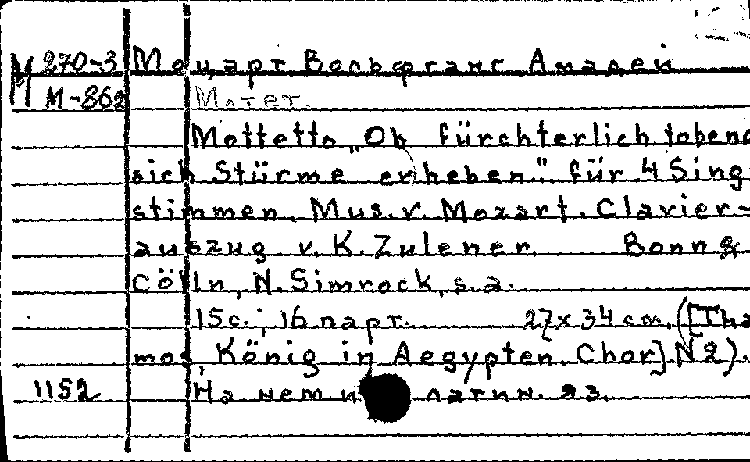 М 270-3 Моцарт Вольфганг Амадей
М-862 Мотет.
Mottetto „Ob fürchterlich tobend
sich Stürme erheben" für 4 Sing-
stimmen. Mus. v. Mozart. Clavier-
auszug v. K. Zulener. Bonn &
Cöln, N. Simrock, s. a.
15 с.; 16 парт. 27x34 см. ([Tha
mos, König in Aegypten. Chor] N 2).
1152 На нем и латин. яз.